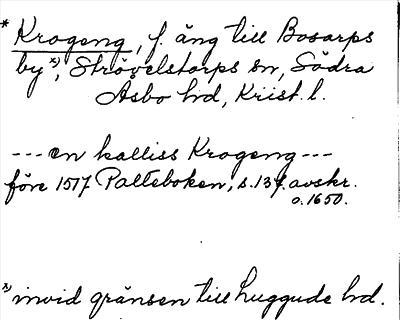 * Krogeng, f. äng till Bosarps
by *), Strövelstorps sn, Södra
Åsbo hd, Krist. l.
--- en kalliss Krogeng ---
före 1517 Palteboken, s. 134, avskr.
o. 1650.
*) invid gränsen till Luggude hd.